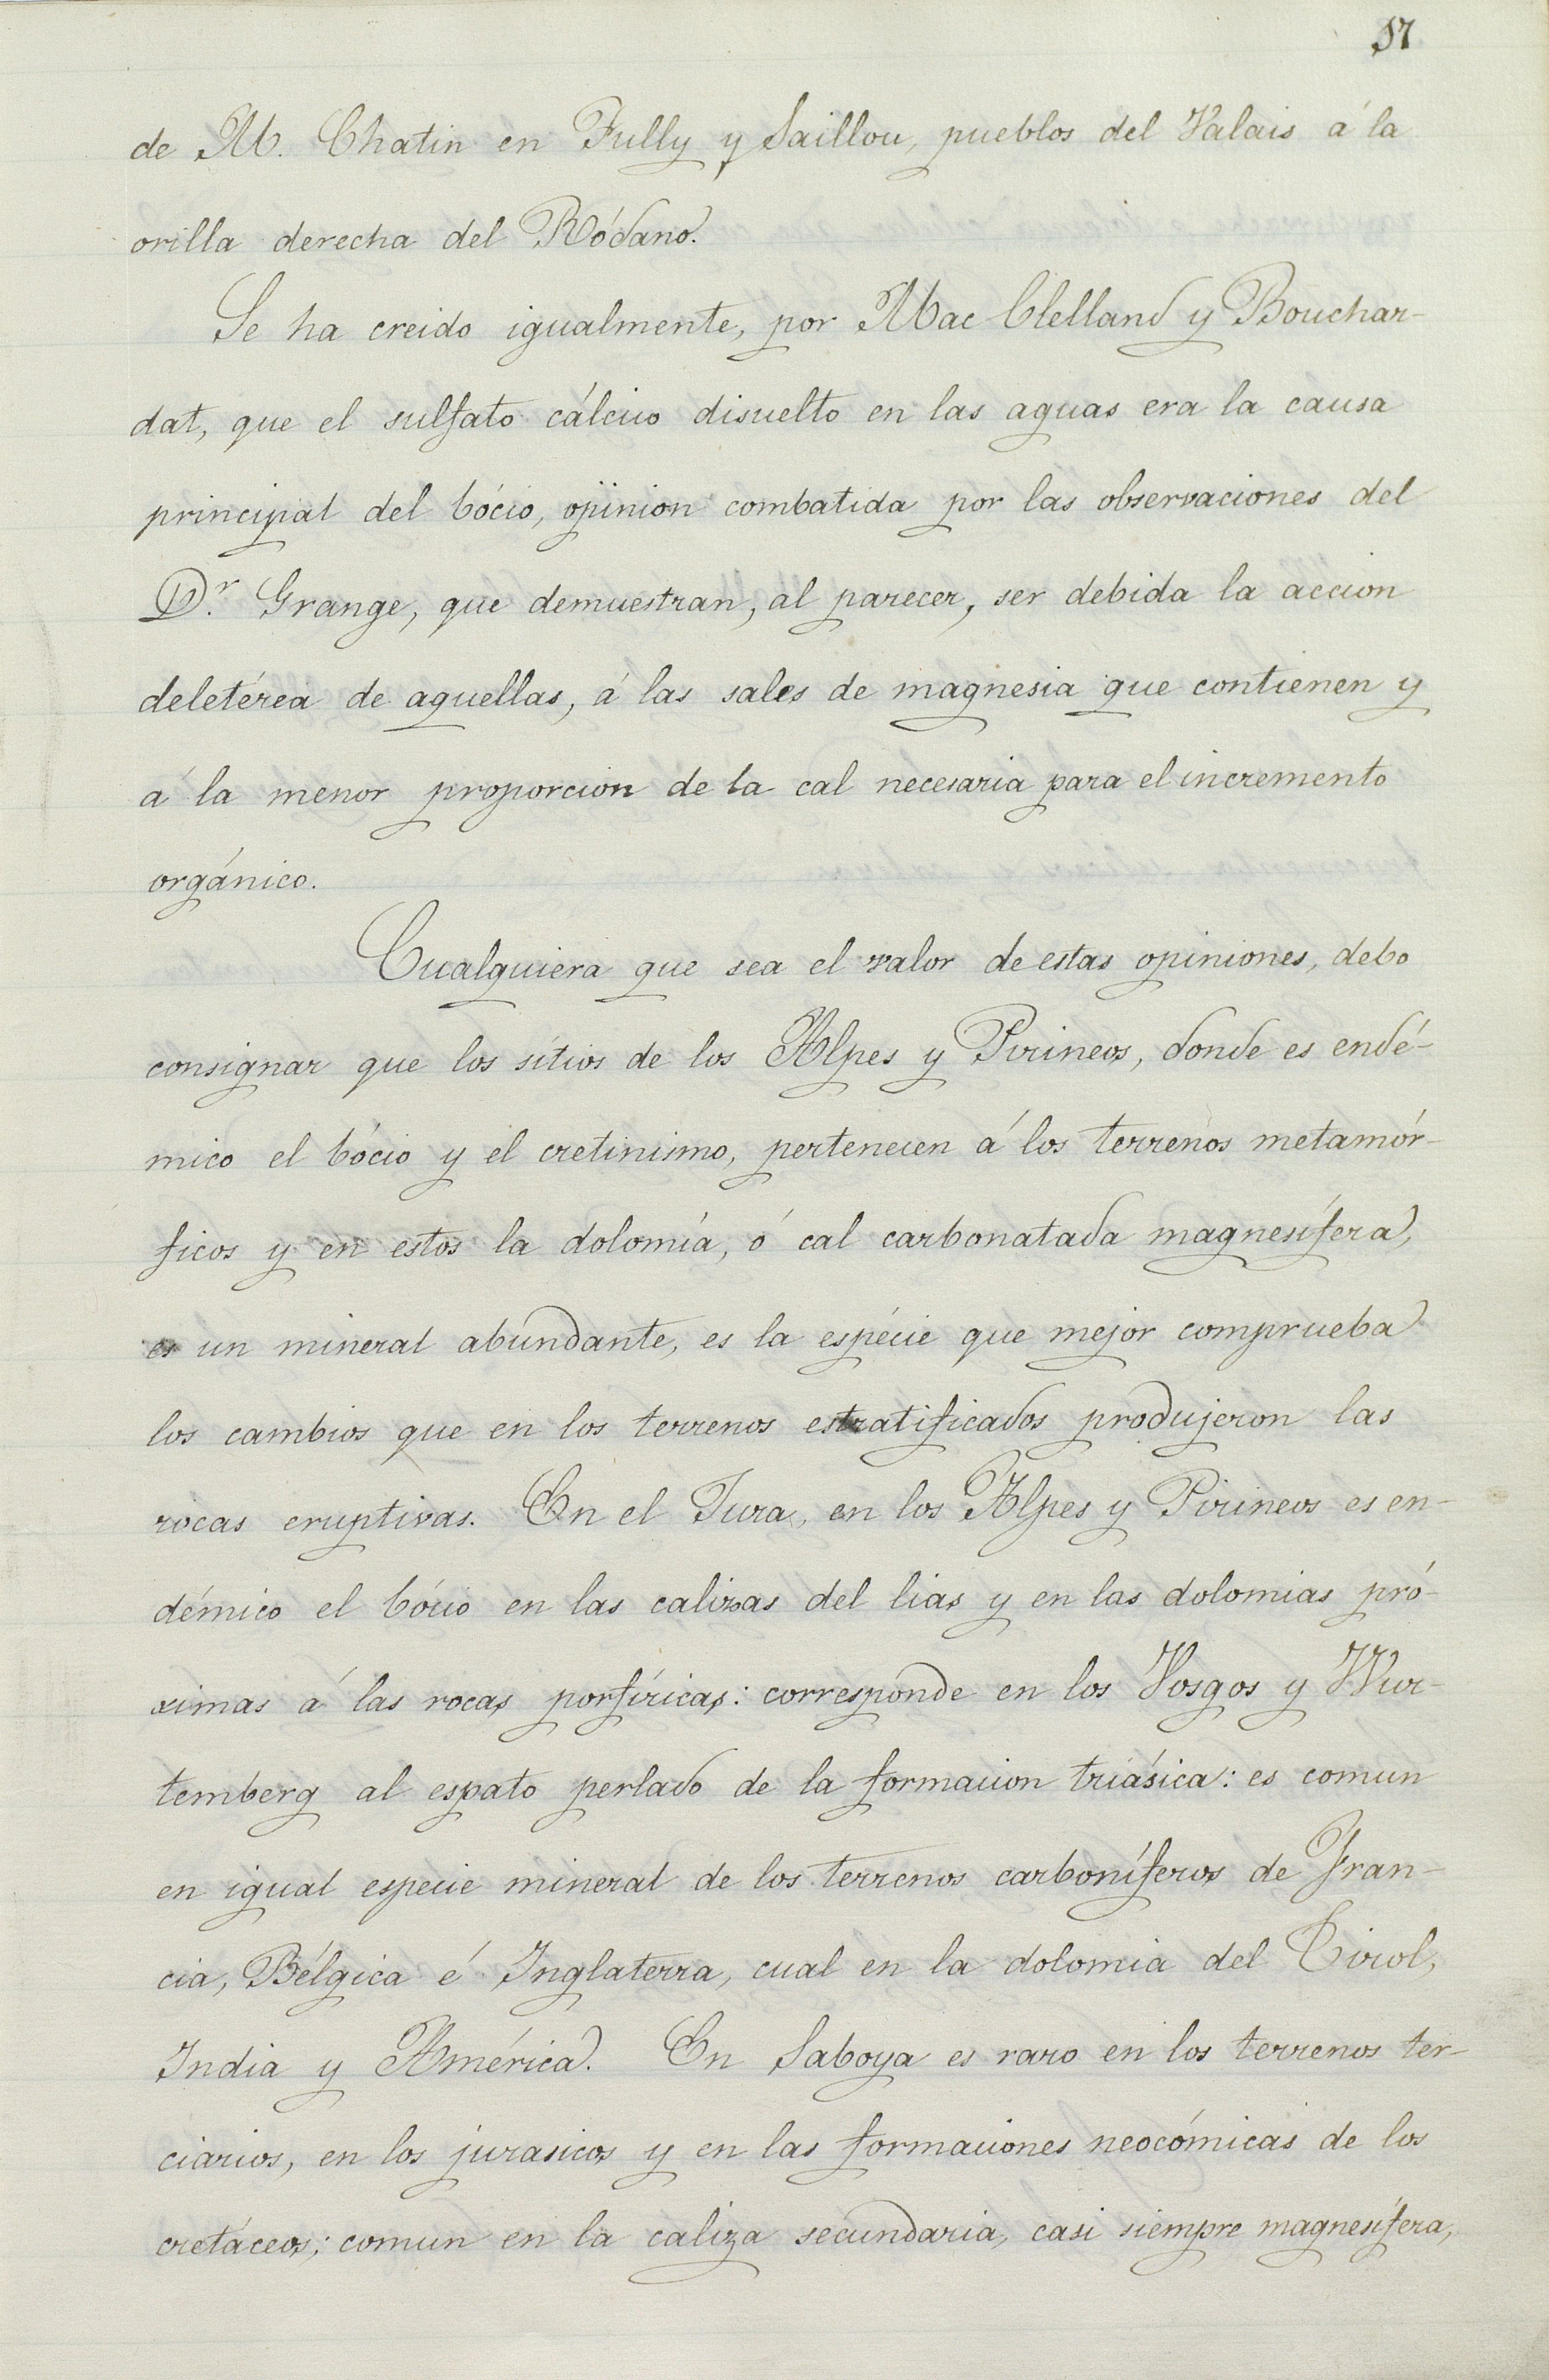 57
de M. Chatin en Fully y Saillou, pueblos del Valais á la
orilla derecha del Ródano.
Se ha creido igualmente, por Mac Clelland y Bouchar-
dat, que el sulfato cálcico disuelto en las aguas era la causa
principal del bócio, opinion combatida por las observaciones del
Dr. Grange, que demuestran, al parecer, ser debida la accion
deletérea de aquellas, á las sales de magnesia que contienen y
á la menor proporcion de la cal necesaria para el incremento
orgánico.
Cualquiera que sea el valor de estas opiniones, debo
consignar que los sitios de los Alpes y Pirineos, donde es endé-
mico el bócio y el cretinismo, pertenecen á los terrenos metamór-
ficos y en estos la dolomía, ó cal carbonatada magnesífera,
es un mineral abundante, es la espécie que mejor comprueba
los cambios que en los terrenos estratificados produjeron las
rocas eruptivas. En el Jura, en los Alpes y Pirineos es en-
démico el bócio en las calizas del lias y en las dolomias pró-
ximas á las rocas porfíricas: corresponde en los Vosgos y Wur-
temberg al espato perlado de la formacion triásica: es comun
en igual especie mineral de los terrenos carboníferos de Fran-
cia, Bélgica é Inglaterra, cual en la dolomia del Tirol,
India y América. En Saboya es raro en los terrenos ter-
ciarios, en los jurasicos y en las formaciones neocómicas de los
cretáceos; comun en la caliza secundaria, casi siempre magnesífera,